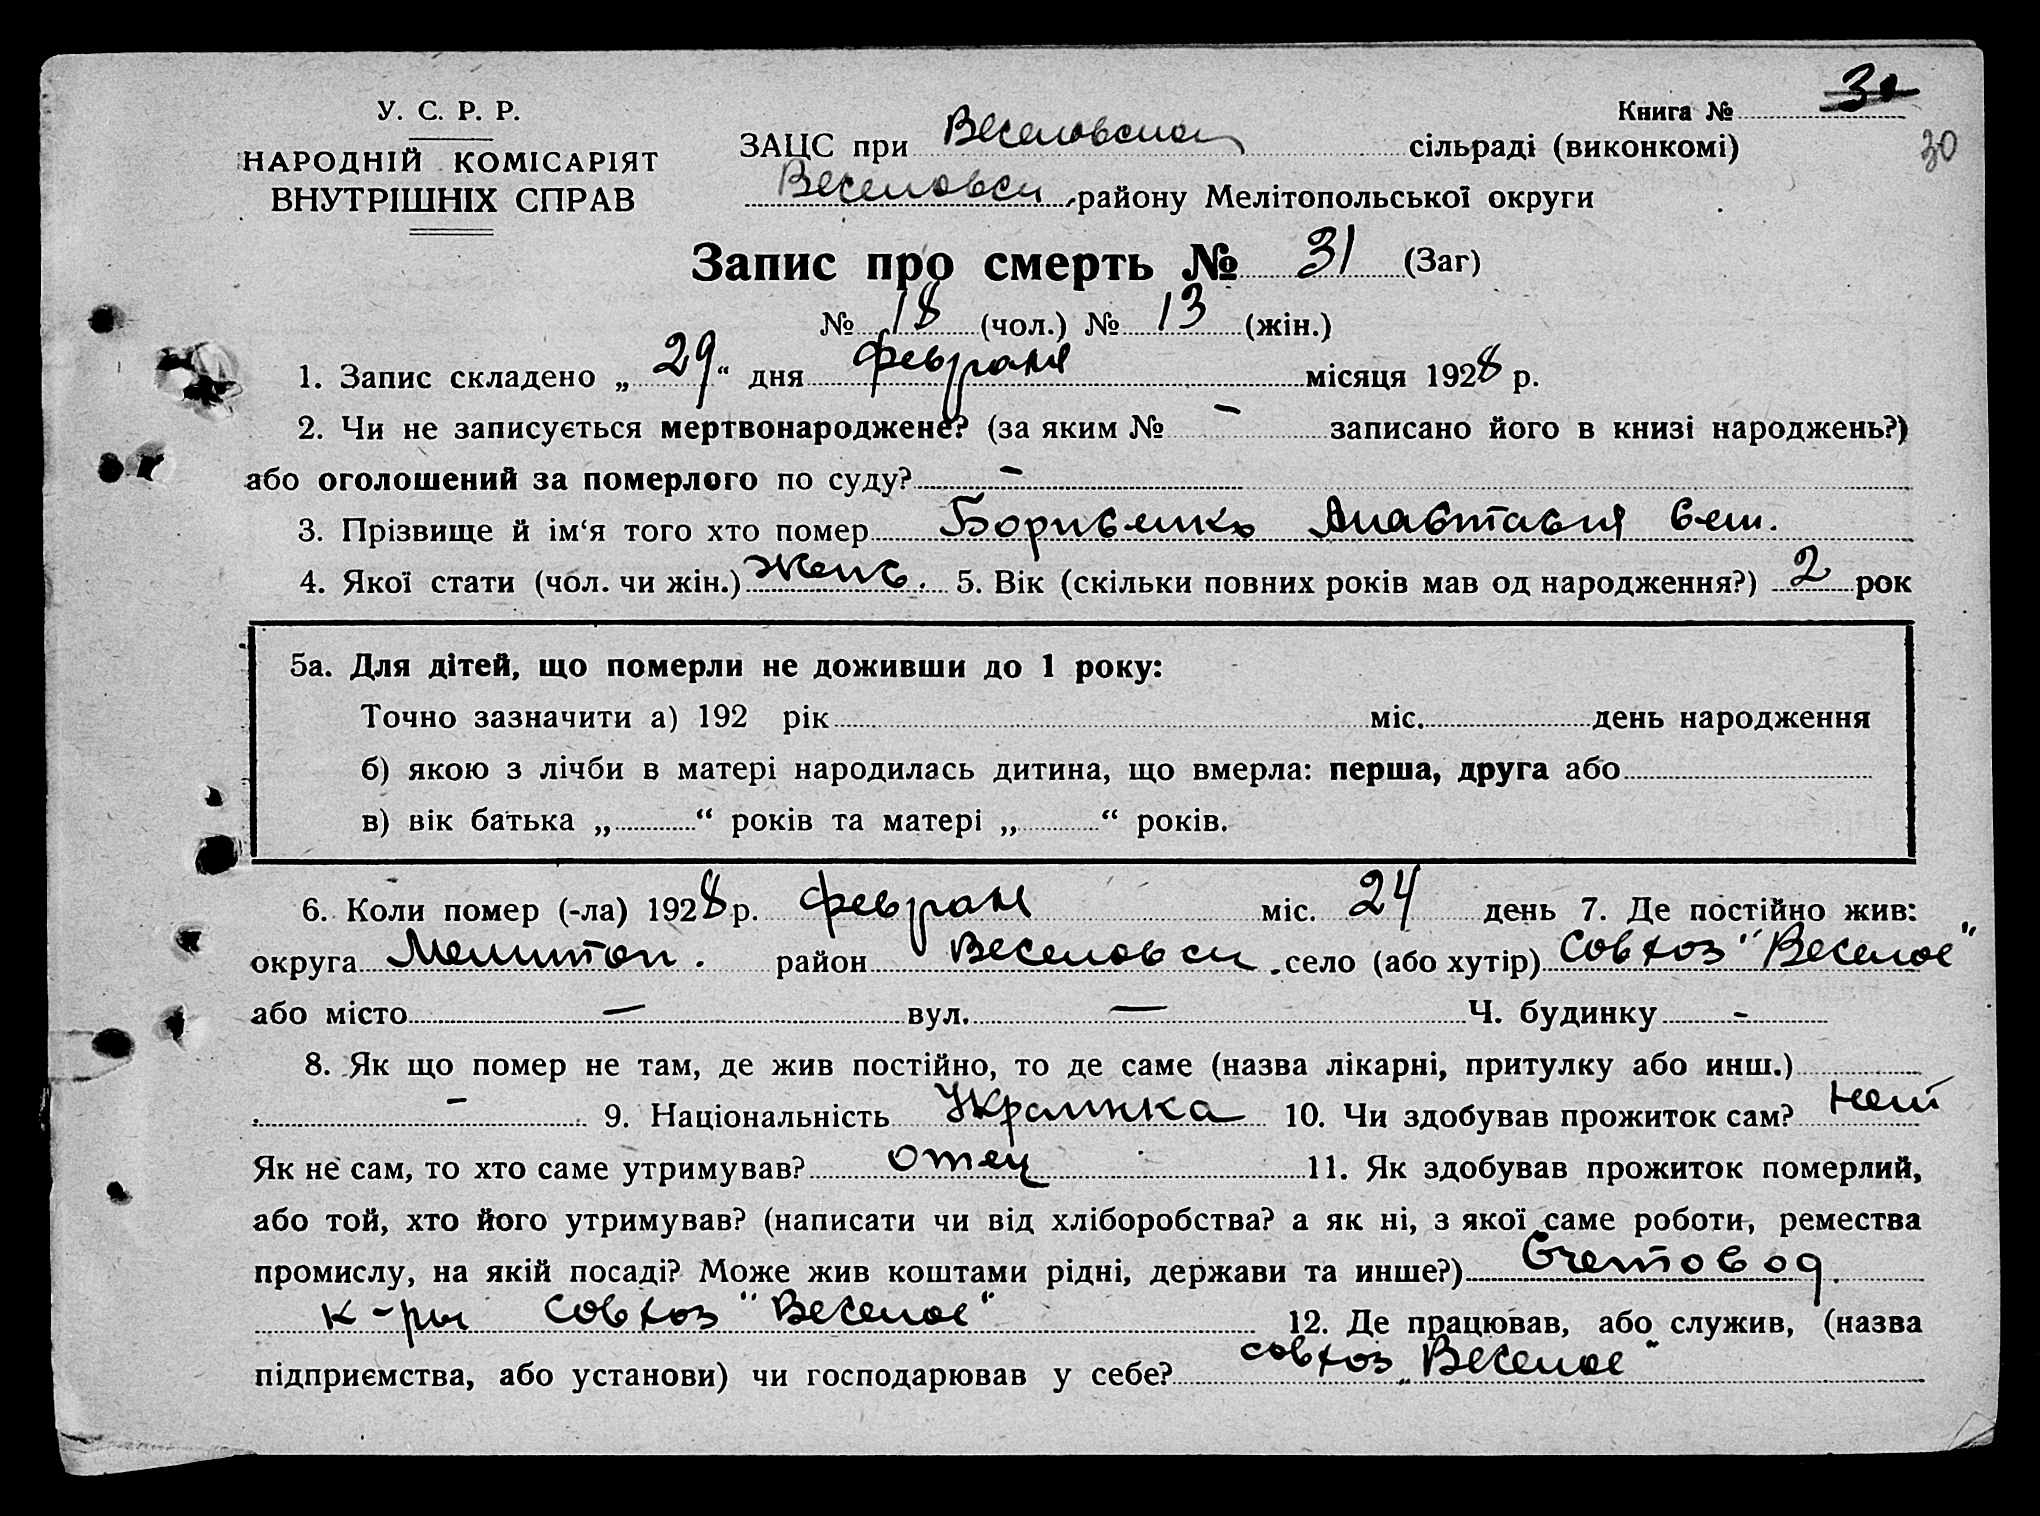 У. С. Р. Р.
НАРОДНІЙ КОМІСАРІЯТ
ВНУТРІШНІХ СПРАВ
Книга №
30
ЗАЦС при Веселовском сільраді (виконкомі)
Веселовск. району Мелітопольської округи
Запис про смерть № 31 (Заг)
№ 18 (чол.) № 13 (жін.)
1. Запис складено „ 29 “ дня февраля місяця 1928 р.
2. Чи не записується мертвонароджене? (за яким № – записано його в книзі народжень?)
або оголошений за померлого по суду? –
3. Прізвище й ім‘я того хто помер
4. Якої стати (чол. чи жін.) женс. 5. Вік (скільки повних років мав од народження?) 2 рок
5а. Для дітей, що померли не доживши до 1 року:
Точно зазначити а) 192 рік міс. день народження
б) якою з лічби в матері народилась дитина, що вмерла: перша, друга або
в) вік батька „ “ років та матері „ “ років.
6. Коли помер (-ла) 1928 р. февраля міс. 24 день 7. Де постійно жив:
округа Мелитоп. район Веселовск. село (або хутір) совхоз "Веселое"
або місто — вул. — Ч. будинку -
8. Як що помер не там, де жив постійно, то де саме (назва лікарні, притулку або инш.)
– 9. Національність Украинка 10. Чи здобував прожиток сам? нет
Як не сам, то хто саме утримував? отец 11. Як здобував прожиток померлий,
або той, хто його утримував? (написати чи від хліборобства? а як ні, з якої саме роботи, ремества
промислу, на якій посаді? Може жив коштами рідні, держави та инше?) Счетовод
к-ры совхоз "Веселое" 12. Де працював, або служив, (назва
підприємства, або установи) чи господарював у себе? совхоз „Веселое"